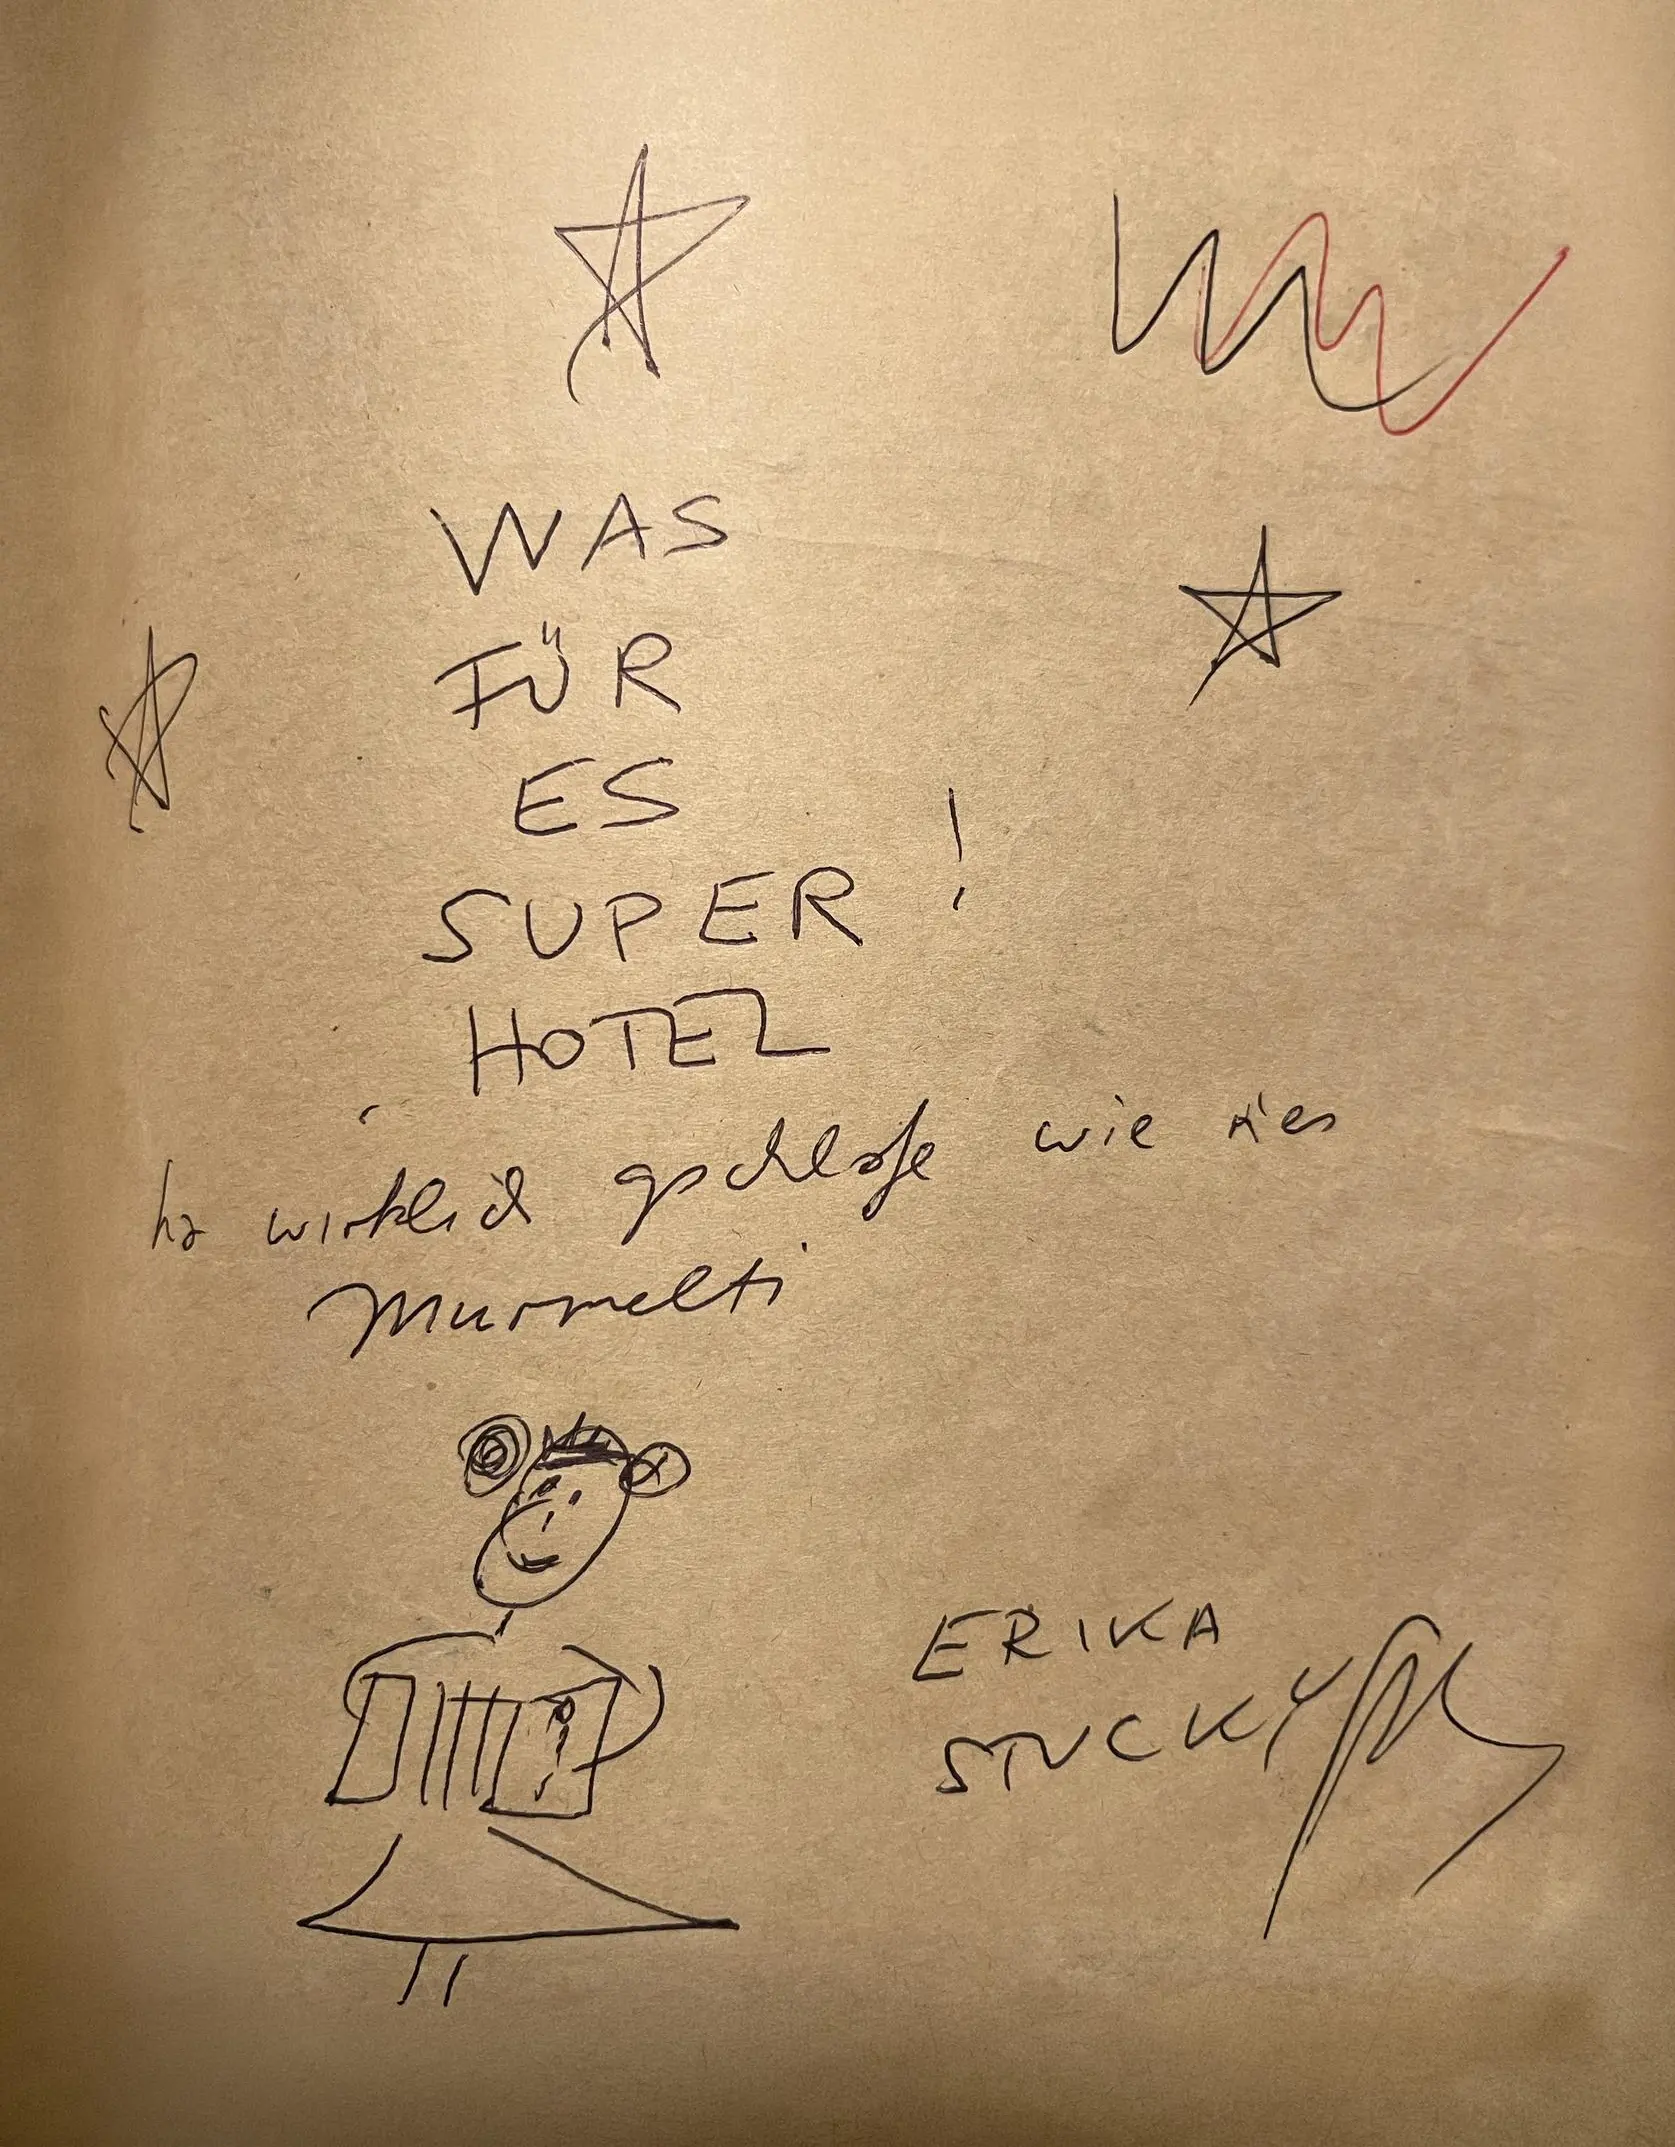 WAS
FÜR
ES
SUPER !
HOTEL
ha wirklich gschlafe wie n'es
Murmelti
ERIKA
STUCKY